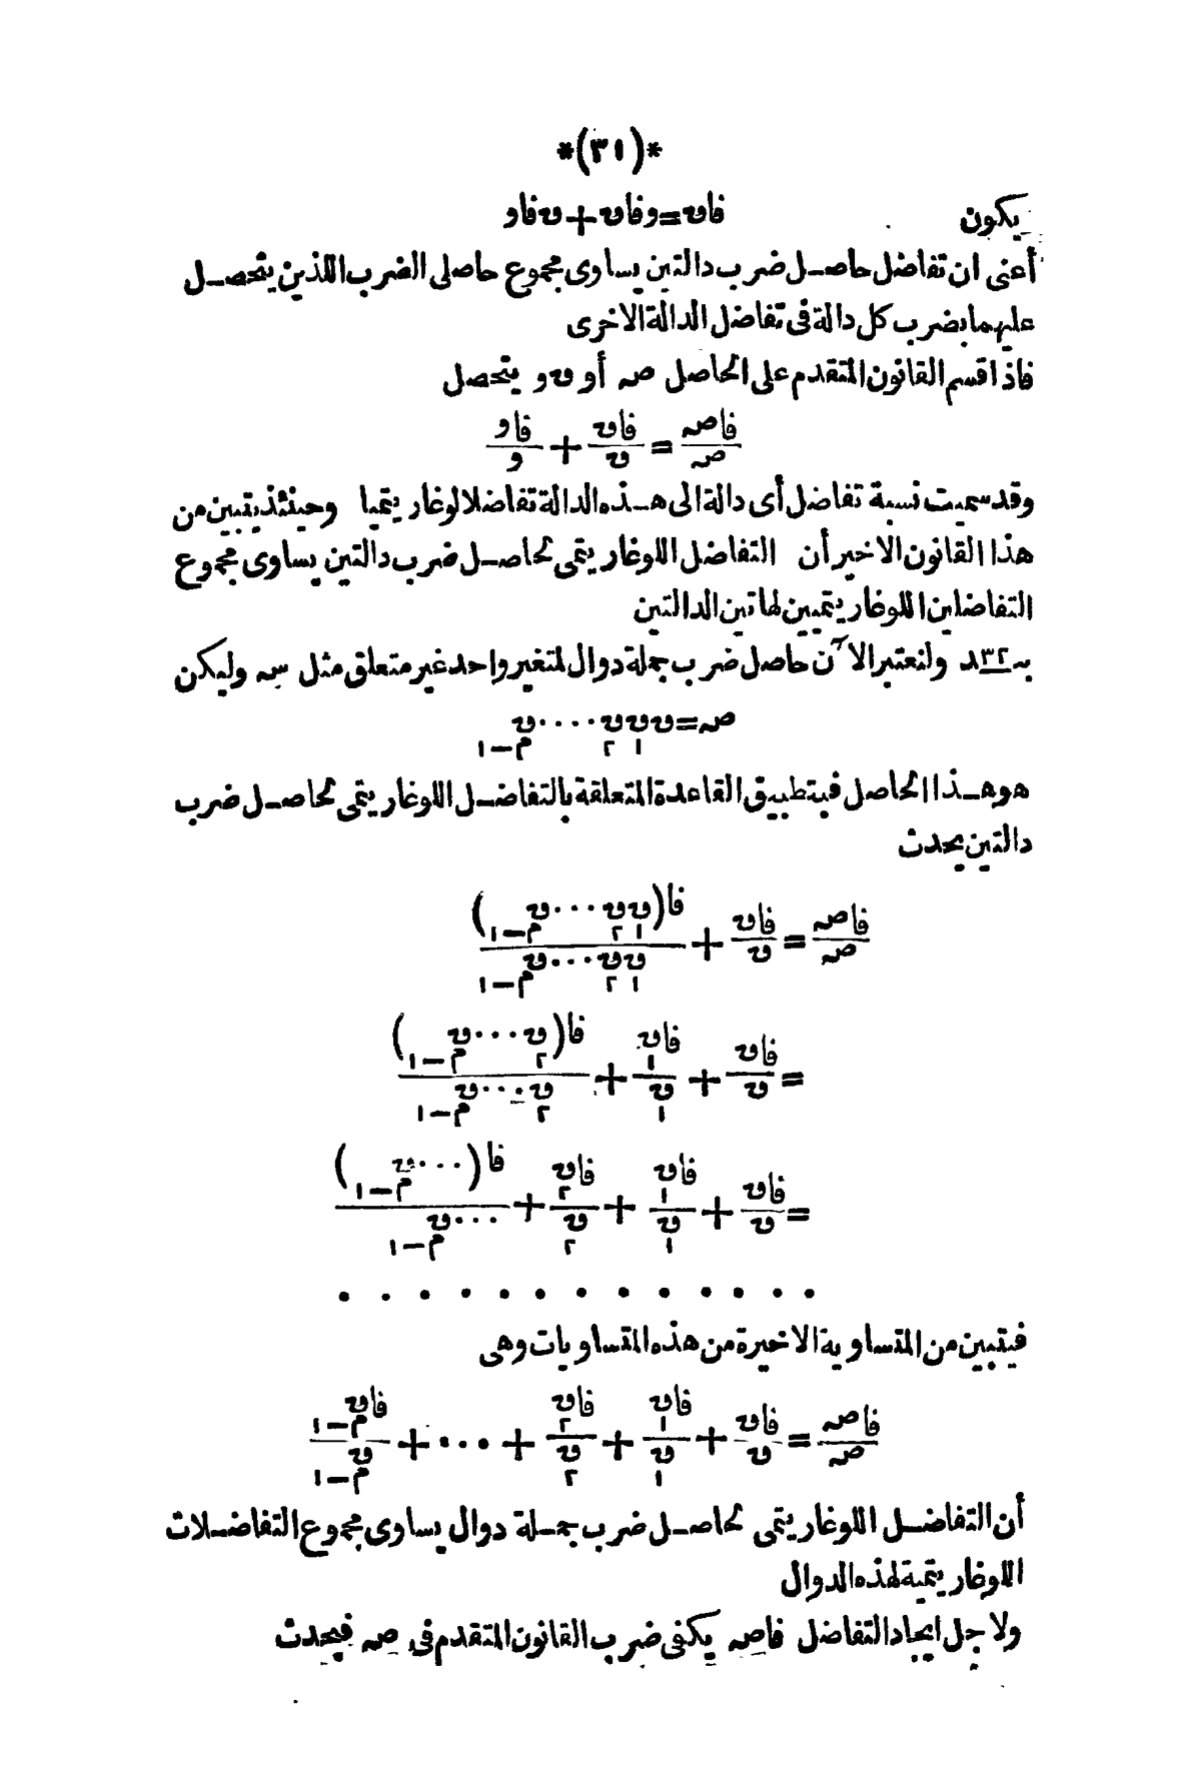 *(٣١)*
يكون فاق=وفاق+قفاو
أعنى ان تفاضل حاصل ضرب دالتين يساوى مجموع حاصلى الضرب اللذين يتحصل
عليهما بضرب كل دالة فى تفاضل الدالة الاخرى
فاذا قسم القانون المتقدم على الحاصل صه أو ق و يتحصل
فاصه/صه = فاق/ق + فاو/و
وقد سميت نسبة تفاضل أى دالة الى هذه الدالة تفاضلا لوغاريتميا وحينئذ يتبين من
هذا القانون الاخير أن التفاضل اللوغاريتمى لحاصل ضرب دالتين يساوى مجموع
التفاضلين اللوغاريتميين لهاتين الدالتين
بـ٣٢ـد ولنعتبر الآن حاصل ضرب جملة دوال لمتغير واحد غير متعلق مثل سه وليكن
صه=ق ق₁ ق₂ ···· ق م−١
هو هذا الحاصل فبتطبيق القاعدة المتعلقة بالتفاضل اللوغاريتمى لحاصل ضرب
دالتين يحدث
فاصه/صه = فاق/ق + فا(ق₁ ق₂ ··· ق م−١)/ق₁ ق₂ ··· ق م−١
= فاق/ق + فاق₁/ق₁ + فا(ق₂ ··· ق م−١)/ق₂ ··· ق م−١
= فاق/ق + فاق₁/ق₁ + فاق₂/ق₂ + فا(··· ق م−١)/··· ق م−١
· · · · · · · · · · · · ·
فيتبين من المتساوية الاخيرة من هذه المتساويات وهى
فاصه/صه = فاق/ق + فاق₁/ق₁ + فاق₂/ق₂ + ··· + فاق م−١/ق م−١
أن التفاضل اللوغاريتمى لحاصل ضرب جملة دوال يساوى مجموع التفاضلات
اللوغاريتمية لهذه الدوال
ولاجل ايجاد التفاضل فاصه يكفى ضرب القانون المتقدم فى صه فيحدث